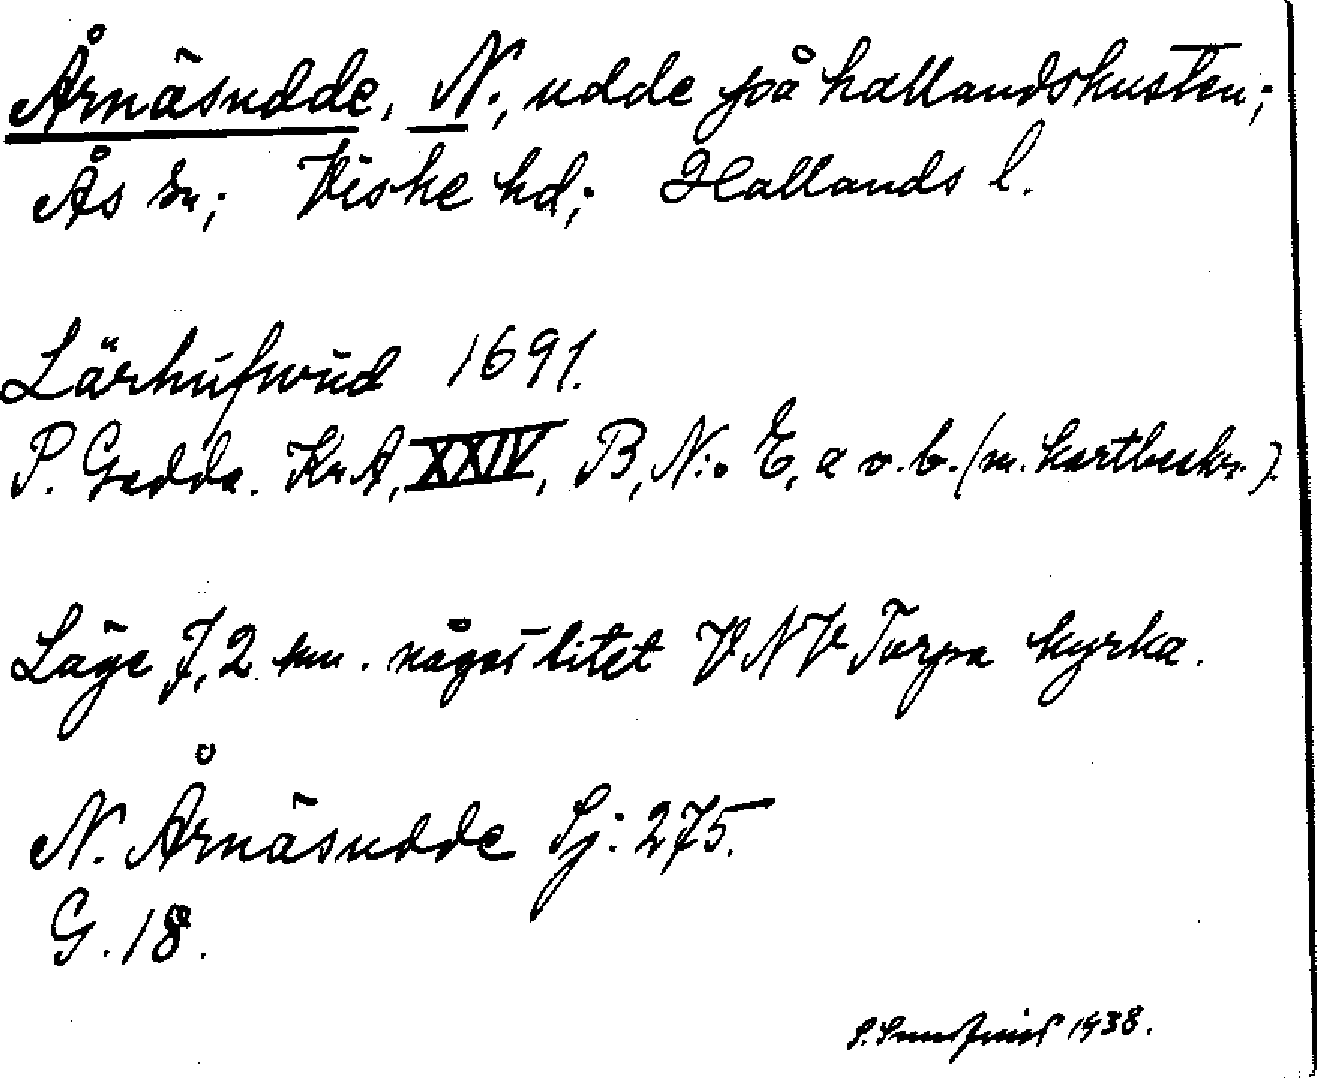 Årnäsudde, N., udde på hallandskusten;
Ås sn; Viske hd; Hallands l.
Lärhufwud 1691.
P. Gedda. Kr.A, XXIV, B, N:o E, a o. b. (m. kartbeskr.).
Läge 7,2 km. något litet VNV Torpa kyrka.
N. Årnäsudde Sj: 275.
G. 18.
1938.